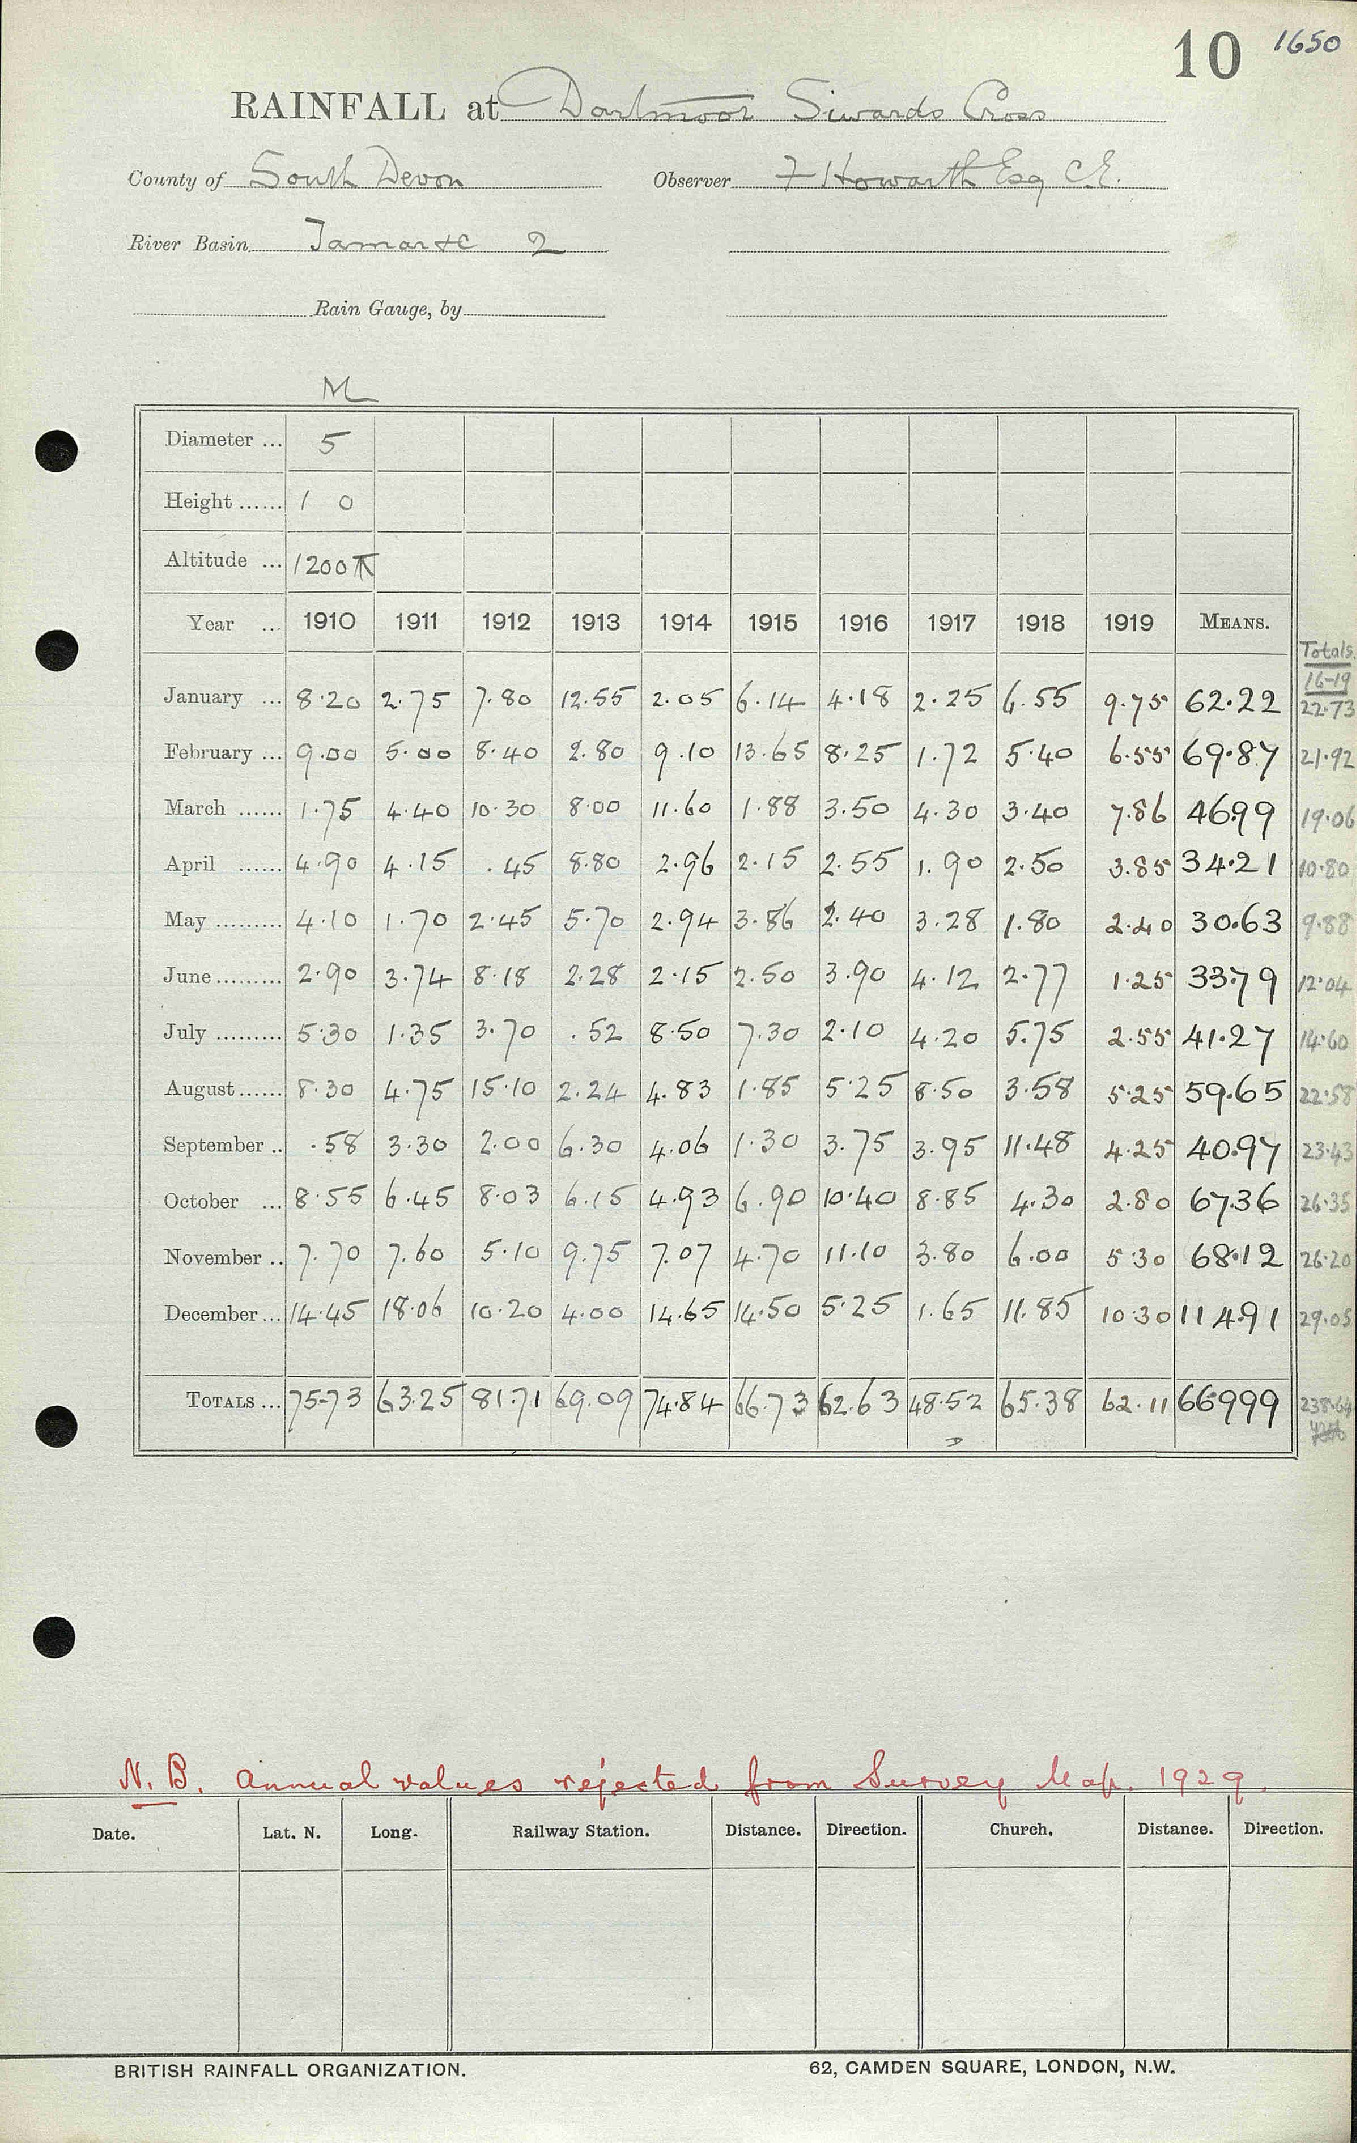 10 1650
RAINFALL at Dartmoor Siwards Cross
County of South Devon Observer F Howarth Esq C.E.
River Basin Tamar &c 2
Rain Gauge, by
M
Diameter ... 5
Height ...... 1 0
Altitude ... 1200
Year .. 1910 1911 1912 1913 1914 1915 1916 1917 1918 1919 MEANS. Totals 16-19
January ... 8.20 2.75 7.80 12.55 2.05 6.14 4.18 2.25 6.55 9.75 62.22 22.73
February ... 9.00 5.00 8.40 2.80 9.10 13.65 8.25 1.72 5.40 6.55 69.87 21.92
March ...... 1.75 4.40 10.30 8.00 11.60 1.88 3.50 4.30 3.40 7.86 46.99 19.06
April ...... 4.90 4.15 .45 8.80 2.96 2.15 2.55 1.90 2.50 3.85 34.21 10.80
May ......... 4.10 1.70 2.45 5.70 2.94 3.86 2.40 3.28 1.80 2.40 30.63 9.88
June ......... 2.90 3.74 8.18 2.28 2.15 2.50 3.90 4.12 2.77 1.25 33.79 12.04
July ......... 5.30 1.35 3.70 .52 8.50 7.30 2.10 4.20 5.75 2.55 41.27 14.60
August ...... 8.30 4.75 15.10 2.24 4.83 1.85 5.25 8.50 3.58 5.25 59.65 22.58
September .. .58 3.30 2.00 6.30 4.06 1.30 3.75 3.95 11.48 4.25 40.97 23.43
October ... 8.55 6.45 8.03 6.15 4.93 6.90 10.40 8.85 4.30 2.80 67.36 26.35
November .. 7.70 7.60 5.10 9.75 7.07 4.70 11.10 3.80 6.00 5.30 68.12 26.20
December ... 14.45 18.06 10.20 4.00 14.65 14.50 5.25 1.65 11.85 10.30 114.91 29.05
TOTALS ... 75.73 63.25 81.71 69.09 74.84 66.73 62.63 48.52 65.38 62.11 669.99 238.64
N.B. Annual values rejected from Survey Map. 1929.
Date. Lat. N. Long. Railway Station. Distance. Direction. Church. Distance. Direction.
BRITISH RAINFALL ORGANIZATION. 62, CAMDEN SQUARE, LONDON, N.W.